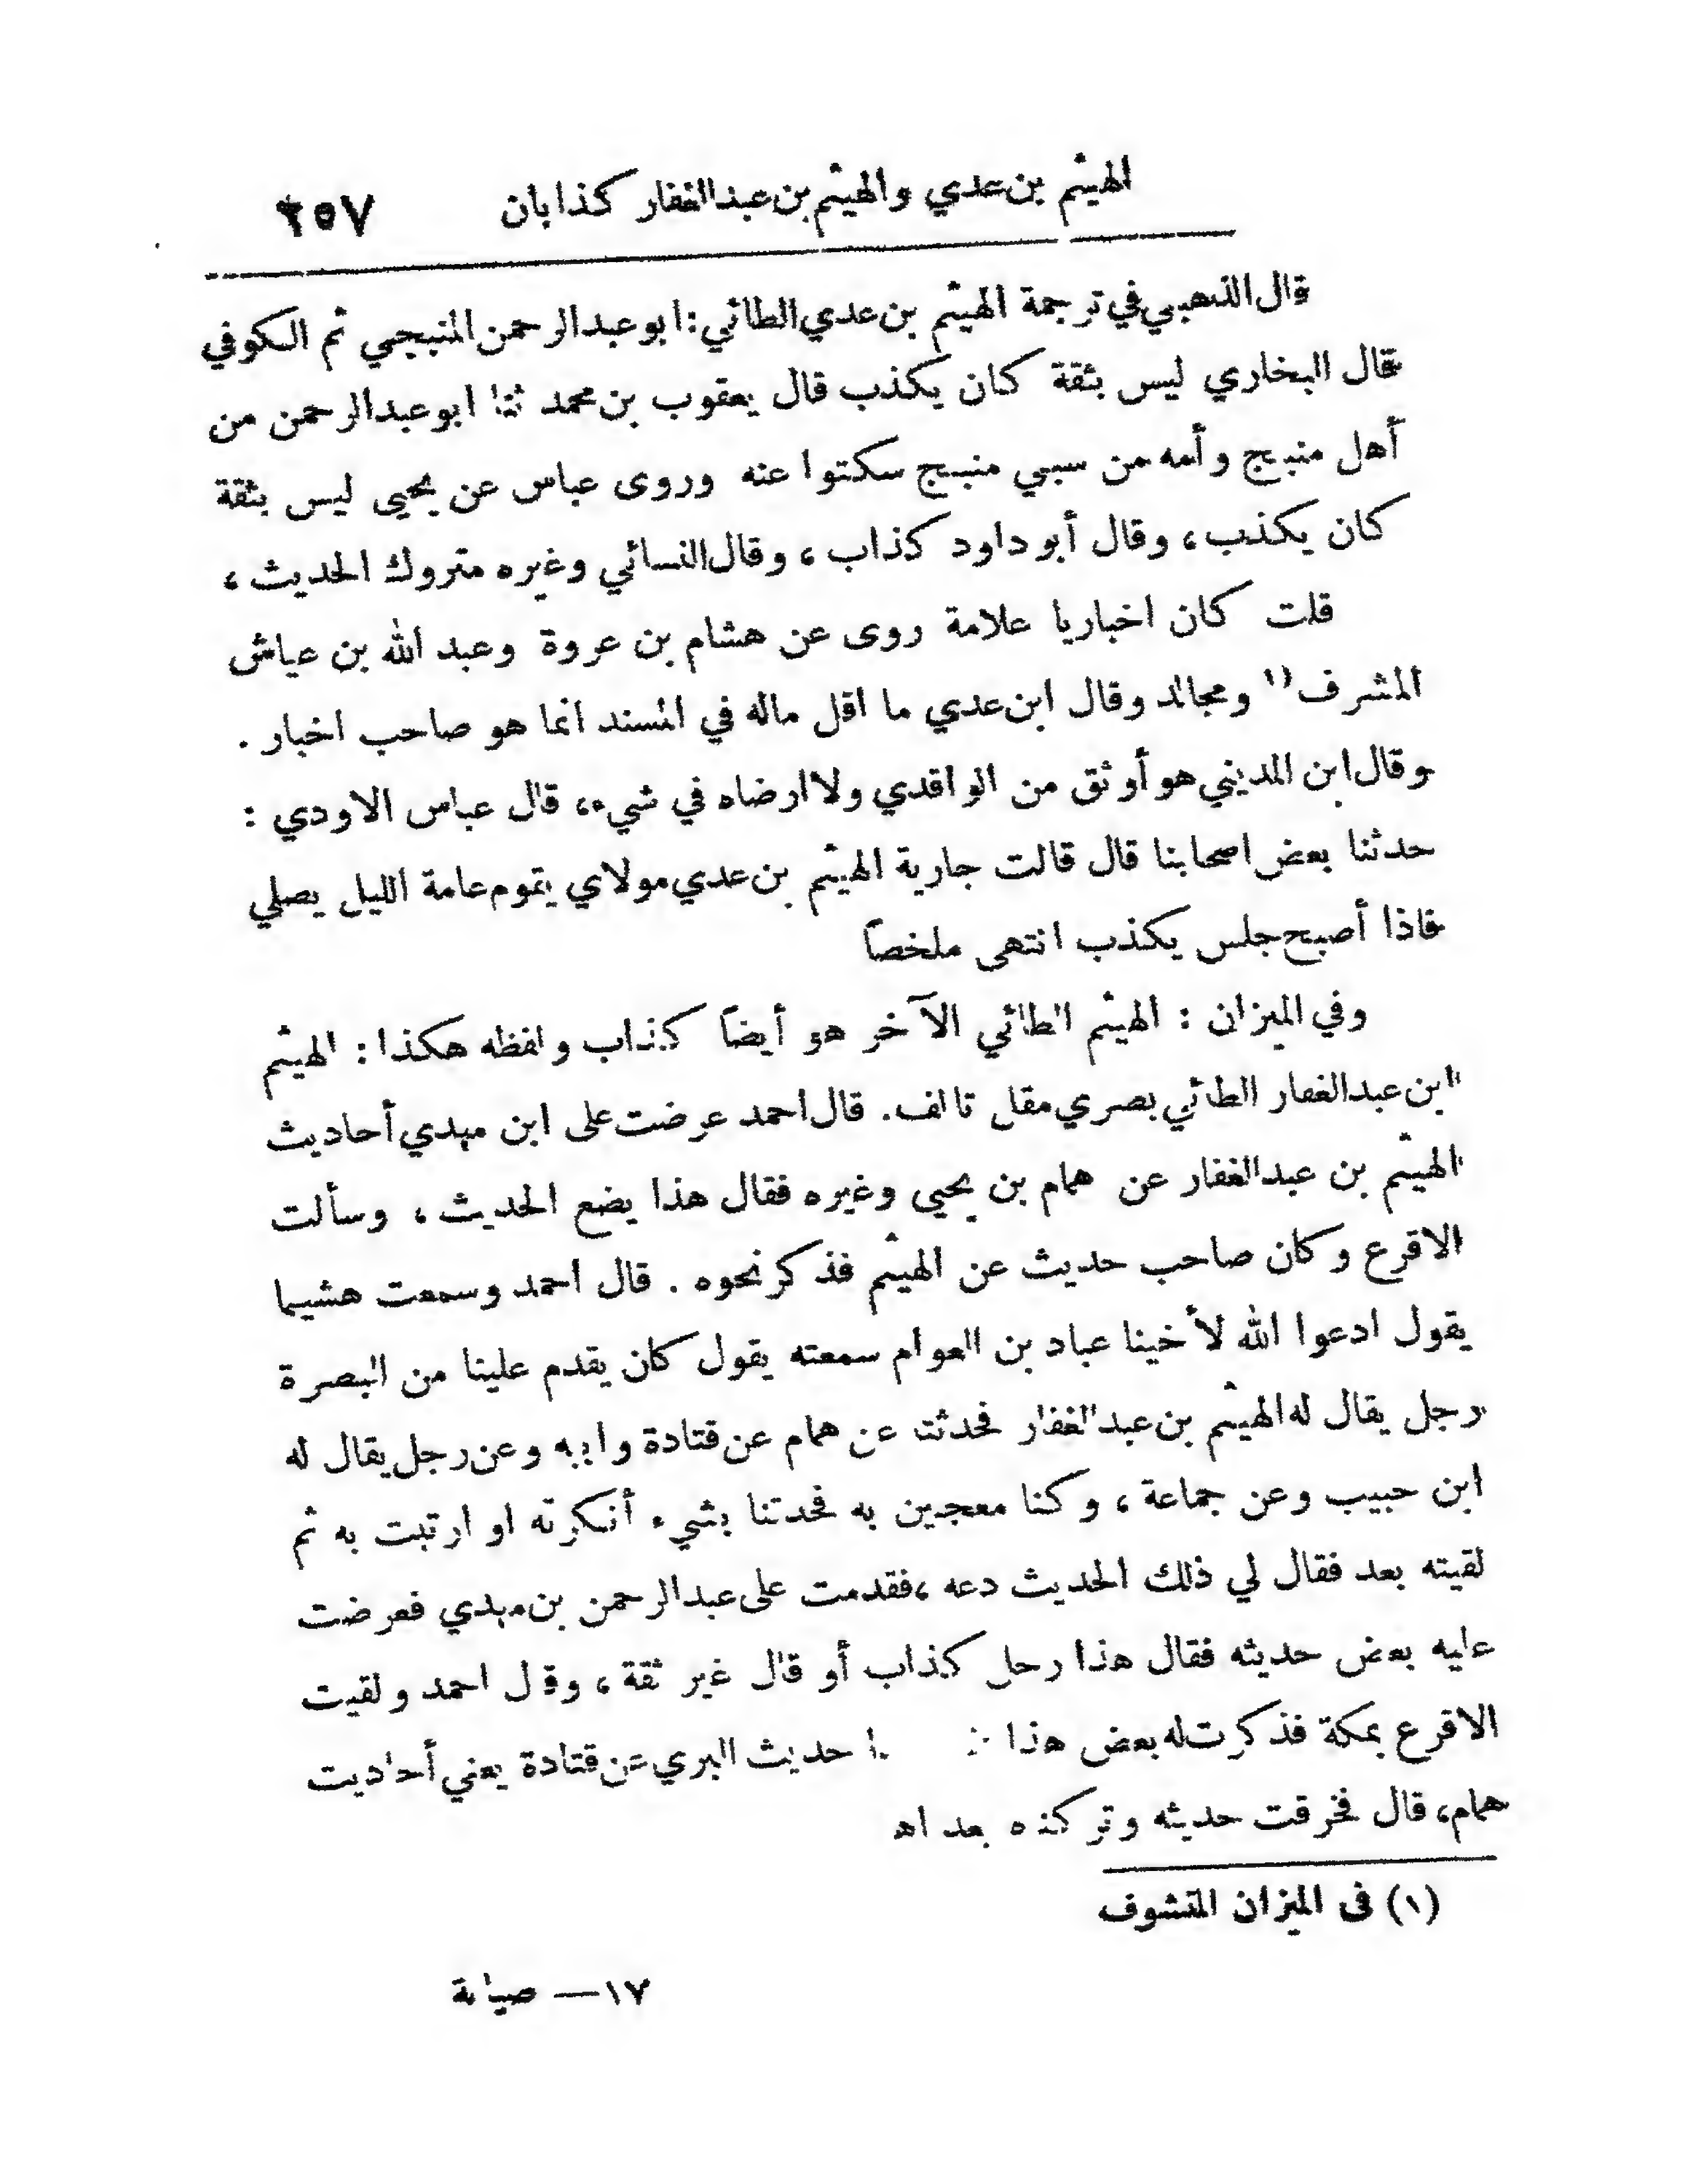 الهيثم بن عدي والهيثم بن عبدالغفار كذابان ٢٥٧
قال الذهبي في ترجمة الهيثم بن عدي الطائي: ابو عبدالرحمن المنبجي ثم الكوفي
قال البخاري ليس بثقة كان يكذب قال يعقوب بن محمد ثنا ابو عبدالرحمن من
أهل منبج وأمه من سبي منبج سكتوا عنه وروى عباس عن يحيى ليس بثقة
كان يكذب، وقال أبو داود كذاب، وقال النسائي وغيره متروك الحديث،
قلت كان اخباريا علامة روى عن هشام بن عروة وعبد الله بن عياش
المشرف(١) ومجالد وقال ابن عدي ما اقل ماله في المسند انما هو صاحب اخبار.
وقال ابن المديني هو أوثق من الواقدي ولا ارضاه في شيء، قال عباس الاودي:
حدثنا بعض اصحابنا قال قالت جارية الهيثم بن عدي مولاي يقوم عامة الليل يصلي
فاذا أصبح جلس يكذب انتهى ملخصاً
وفي الميزان: الهيثم الطائي الآخر هو أيضاً كذاب ولفظه هكذا: الهيثم
ابن عبدالغفار الطائي بصري مقل تالف. قال احمد عرضت على ابن مهدي أحاديث
الهيثم بن عبدالغفار عن همام بن يحيى وغيره فقال هذا يضع الحديث، وسألت
الاقرع وكان صاحب حديث عن الهيثم فذكر نحوه. قال احمد وسمعت هشيما
يقول ادعوا الله لأخينا عباد بن العوام سمعته يقول كان يقدم علينا من البصرة
رجل يقال له الهيثم بن عبدالغفار فحدثنا عن همام عن قتادة وابيه وعن رجل يقال له
ابن حبيب وعن جماعة، وكنا معجبين به فحدثنا بشيء أنكرته او ارتبت به ثم
لقيته بعد فقال لي ذلك الحديث دعه، فقدمت على عبدالرحمن بن مهدي فعرضت
عليه بعض حديثه فقال هذا رجل كذاب أو قال غير ثقة، وقال احمد ولقيت
الاقرع بمكة فذكرت له بعض هذا حديث البري عن قتادة يعني أحاديث
همام، قال فخرقت حديثه وتركناه بعد اه
(١) فى الميزان المتشوف
١٧— صيانة